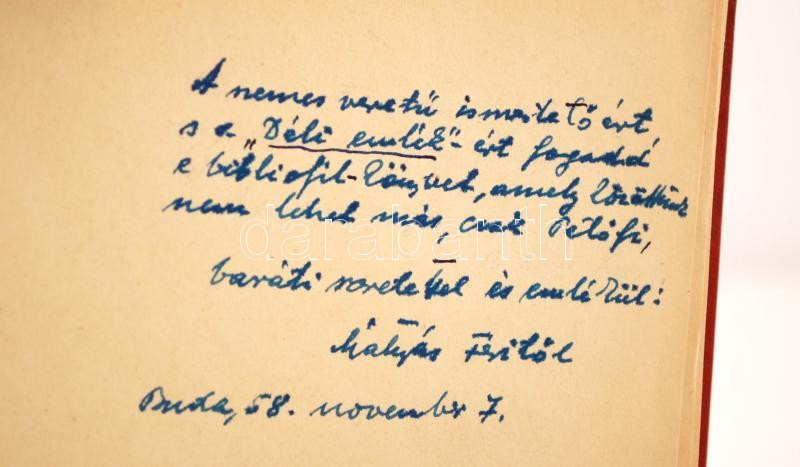 A nemes veretű ismertetőért,
s a „Déli emlék”-ért fogadd
e bibliofil-könyvet, amely közöttünk
nem lehet más, csak Petőfi,
darabanth
baráti szeretettel és emlékül:
Mátyás Feritől
Buda, 58. november 7.